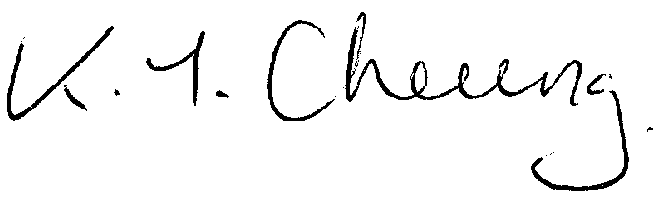 K. Y. Cheung.